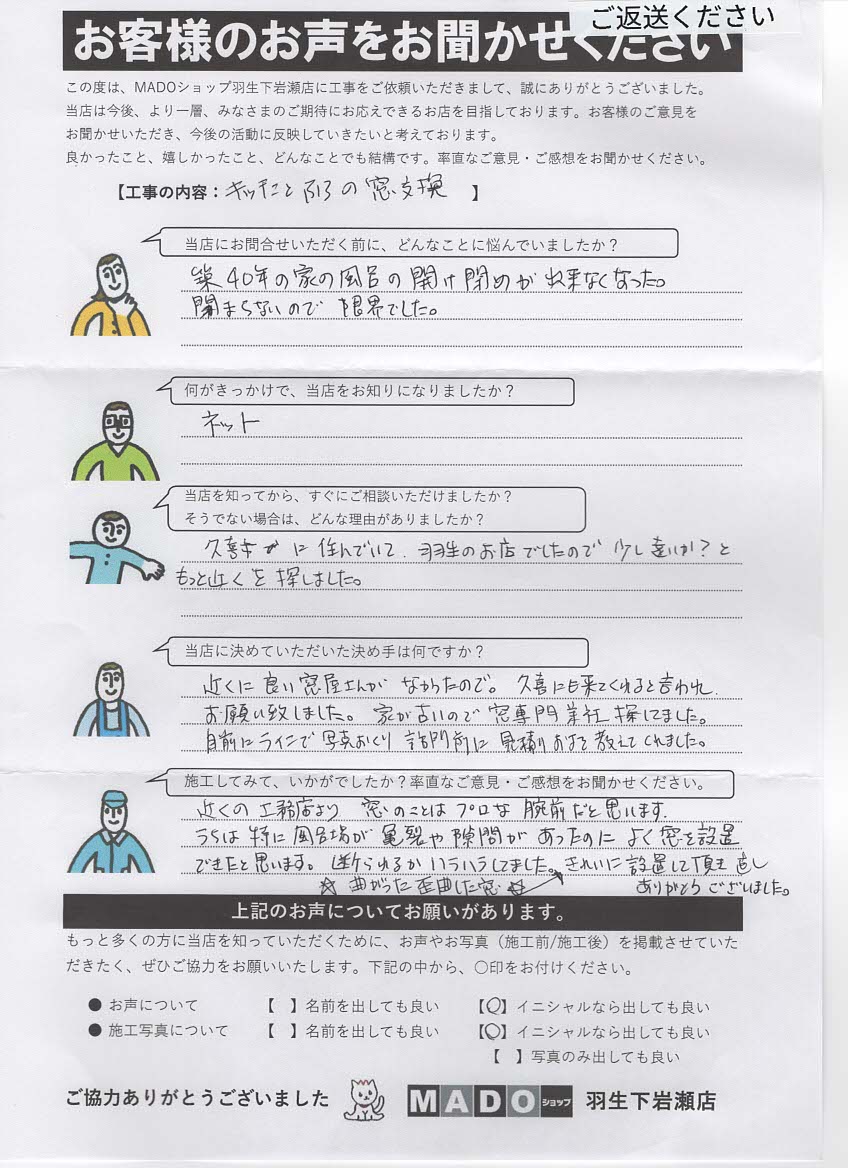 ご返送ください
お客様のお声をお聞かせください
この度は、MADOショップ羽生下岩瀬店に工事をご依頼いただきまして、誠にありがとうございました。
当店は今後、より一層、みなさまのご期待にお応えできるお店を目指しております。お客様のご意見を
お聞かせいただき、今後の活動に反映していきたいと考えております。
良かったこと、嬉しかったこと、どんなことでも結構です。率直なご意見・ご感想をお聞かせください。
【工事の内容：キッチンとふろの窓交換 】
当店にお問合せいただく前に、どんなことに悩んでいましたか？
築40年の家の風呂の開け閉めが出来なくなった。
閉まらないので限界でした。
何がきっかけで、当店をお知りになりましたか？
ネット
当店を知ってから、すぐにご相談いただけましたか？
そうでない場合は、どんな理由がありましたか？
久喜市に住んでいて、羽生のお店でしたので少し遠いか？と
もっと近くを探しました。
当店に決めていただいた決め手は何ですか？
近くに良い窓屋さんがなかったので。久喜にも来てくれると言われ、
お願い致しました。家が古いので窓専門業社探してました。
自前にラインで写真おくり訪問前に見積りなど教えてくれました。
施工してみて、いかがでしたか？率直なご意見・ご感想をお聞かせください。
近くの工務店より窓のことはプロな腕前だと思います。
うちは特に風呂場が亀裂や隙間があったのによく窓を設置
できたと思います。断られるかハラハラしてました。きれいに設置して頂き
☆曲がった歪曲した窓☆
ありがとうございました。
上記のお声についてお願いがあります。
もっと多くの方に当店を知っていただくために、お声やお写真（施工前/施工後）を掲載させていた
だきたく、ぜひご協力をお願いいたします。下記の中から、○印をお付けください。
● お声について 【 】名前を出しても良い 【○】イニシャルなら出しても良い
● 施工写真について 【 】名前を出しても良い 【○】イニシャルなら出しても良い
【 】写真のみ出しても良い
ご協力ありがとうございました MADOショップ 羽生下岩瀬店